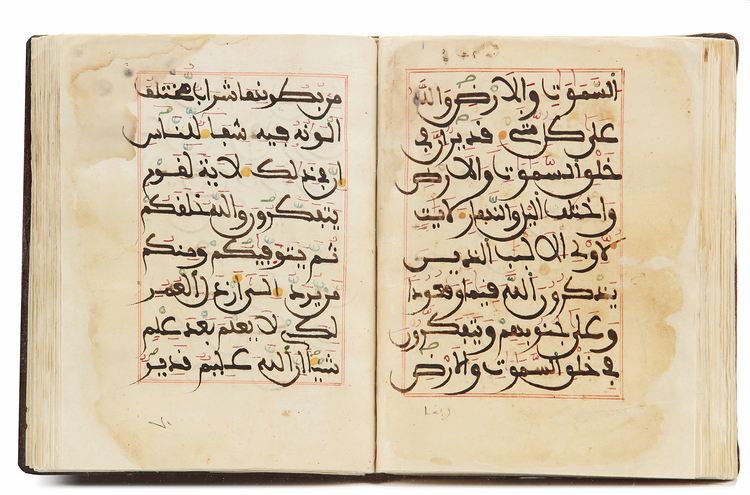 السموت والارض والله
على كل شيء قدير ان في
خلق السموت والارض
واختلف اليل والنهار لايت
لاولي الالبب الذين
يذكرون الله قيما وقعودا
وعلى جنوبهم ويتفكرون
في خلق السموت والارض
ربنا
من بطونها شراب مختلف
الونه فيه شفا للناس
ان في ذلك لاية لقوم
يتفكرون والله خلقكم
ثم يتوفيكم ومنكم
من يرد الى ارذل العمر
لكي لا يعلم بعد علم
شيا ان الله عليم قدير